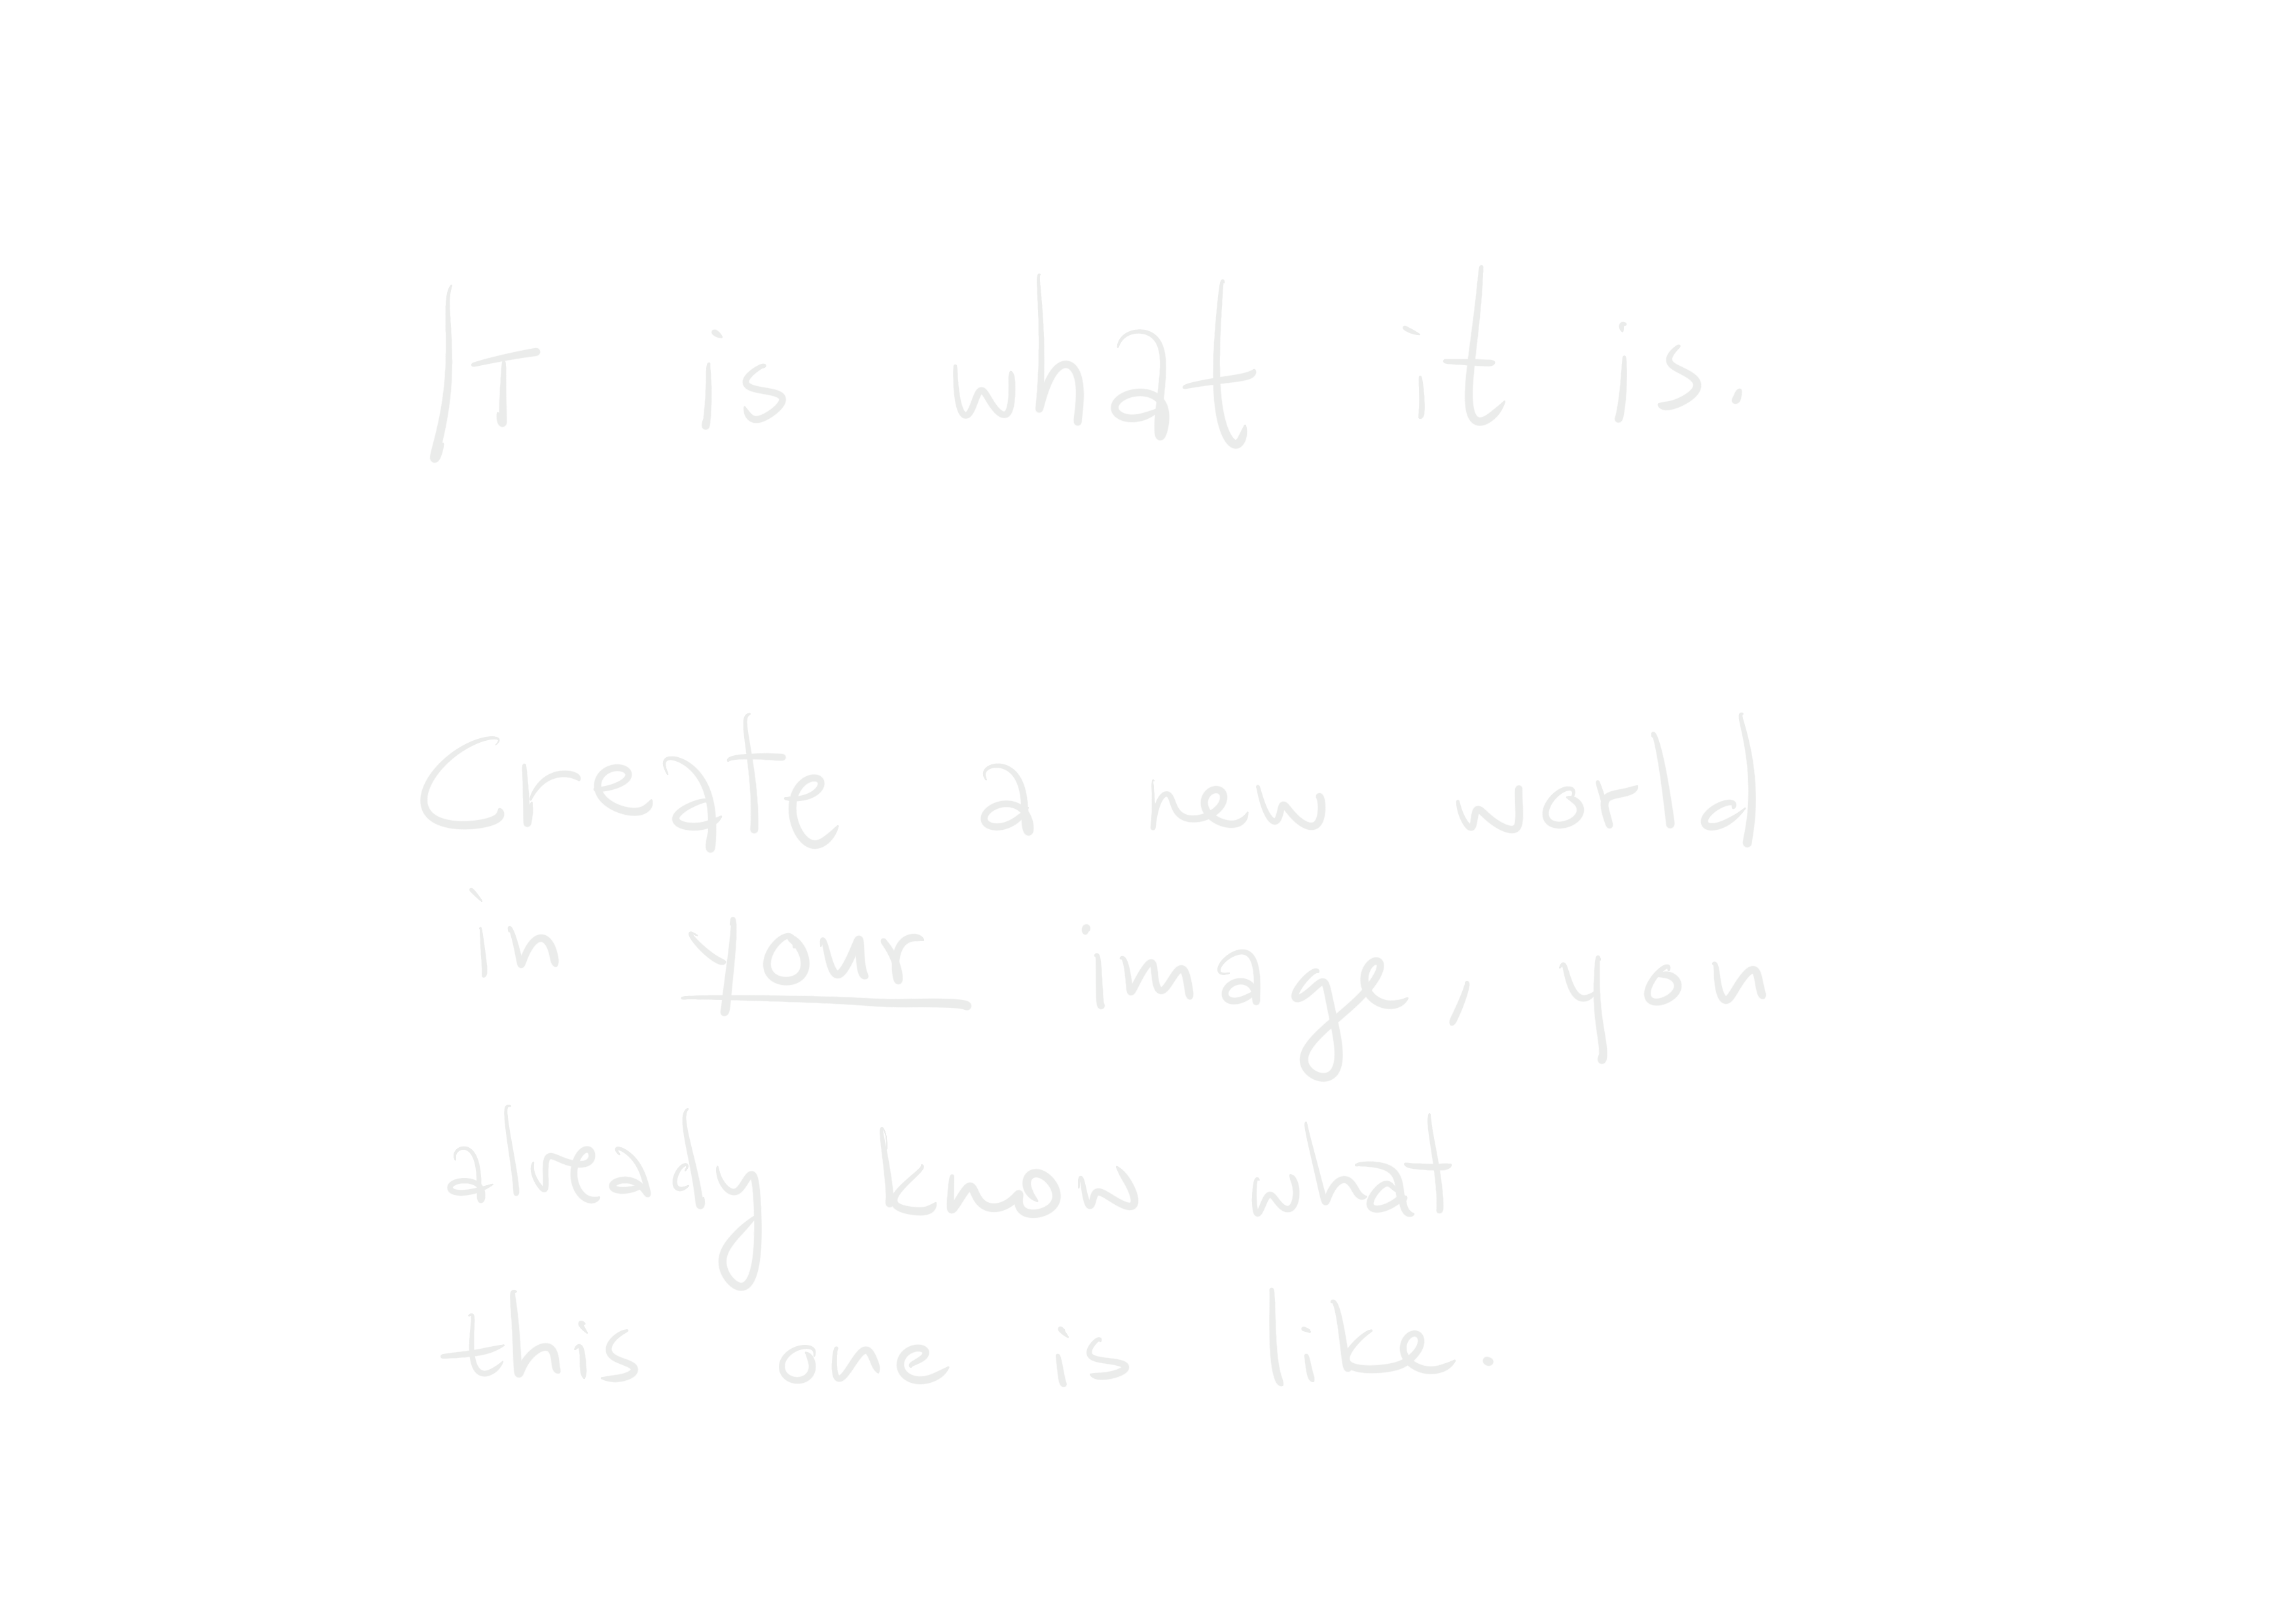 It is what it is.
Create a new world
in your image, you
already know what
this one is like.